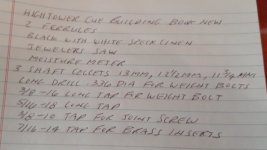 HIGHTOWER CUE BUILDING BOOK NEW
2 FERRULES
BLACK WITH WHITE SPECK LINEN
JEWELERS SAW
MOISTURE METER
3 SHAFT COLLETS 13MM, 12 1/2 MM, 11 3/4 MM
LONG DRILL .336 DIA FOR WEIGHT BOLTS
3/8-16 LONG TAP FOR WEIGHT BOLT
5/16-18 LONG TAP
3/8-10 TAP FOR JOINT SCREW
7/16-14 TAP FOR BRASS INSERTS